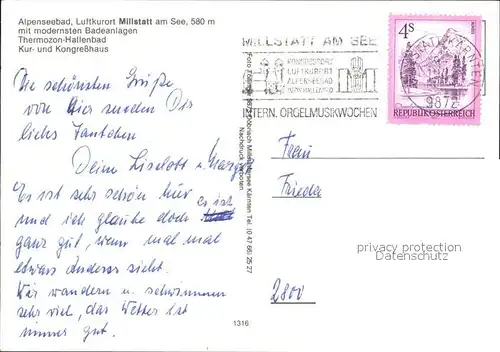 Alpenseebad, Luftkurort Millstatt am See, 580 m
mit modernsten Badeanlagen
Thermozon-Hallenbad
Kur- und Kongreßhaus
Die schönsten Grüße
von hier senden Dir
liebs Tantchen
Deine Liselott u.
Es ist sehr schön hier es ist
und ich glaube doch
ganz gut, wenn man mal
etwas Anderes sieht.
Wir wandern u. schwimmen
sehr viel, das Wetter ist
immer gut.
1316
Nachdruck verboten
MILLSTATT AM SEE
KONGRESSORT
LUFTKURORT
ALPENSEEBAD
INTERN. ORGELMUSIKWOCHEN
9872
4S
REPUBLIK ÖSTERREICH
Frau
Frieda
2800
privacy protection
Datenschutz